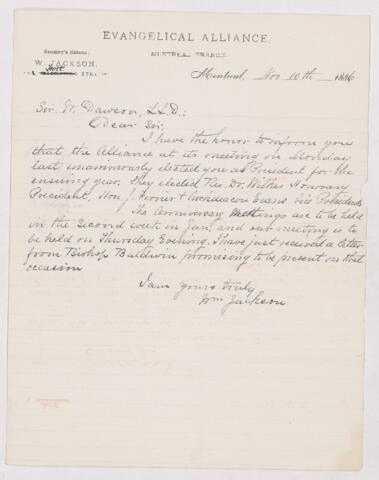 EVANGELICAL ALLIANCE.
MONTREAL BRANCH
Secretary's Address:
W. JACKSON,
STREET
Montreal, Nov 10th 1886
Sir W. Dawson, L.L.D.:
Dear Sir.
I have the honor to inform you
that the Alliance at its meeting on Monday
last unanimously elected you as President for the
ensuing year. They elected Rev. Dr. Wilkes Honorary
President, Hon. J. Ferrier & Archdeacon Evans Vice Presidents
The Anniversary Meetings are to be held
in the Second week in Jany and our meeting is to
be held on Thursday Evening. I have just received a letter
from Bishop Baldwin promising to be present on that
occasion
I am yours truly
Wm Jackson